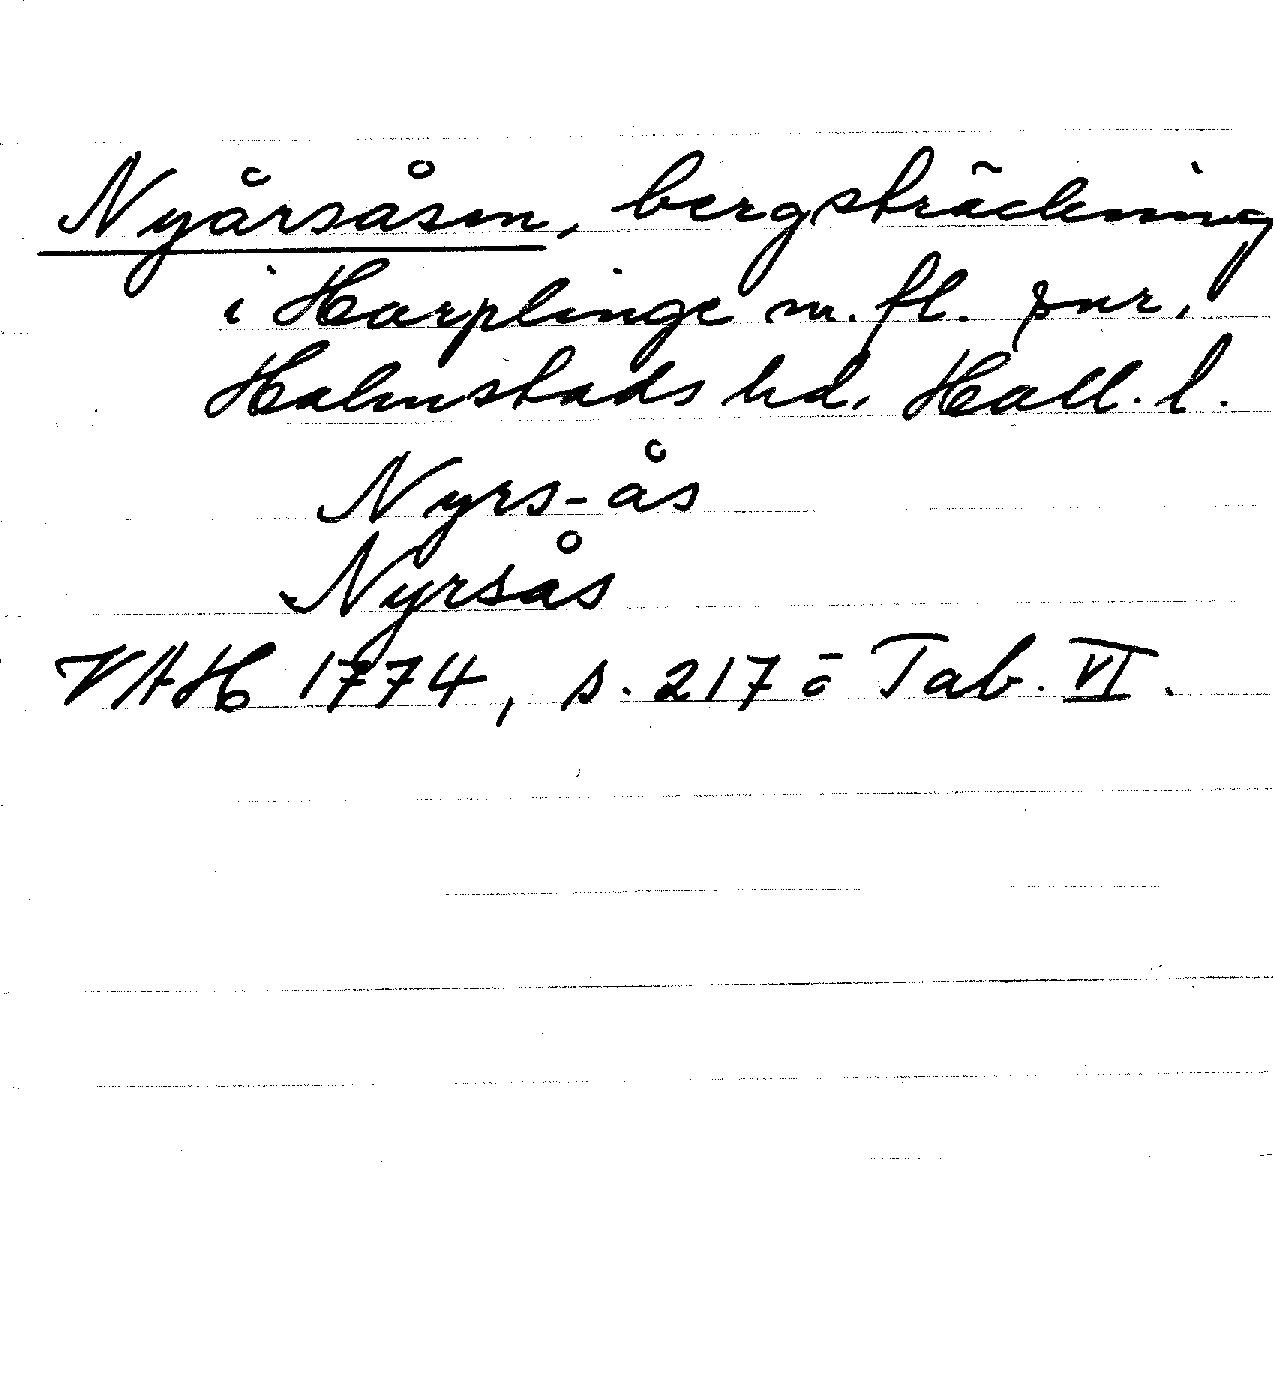 Nyårsåsen, bergsträckning
i Harplinge m. fl. snr,
Halmstads hd, Hall. l.
Nyrs-ås
Nyrsås
VAH 1774, s. 217 o Tab. VI.